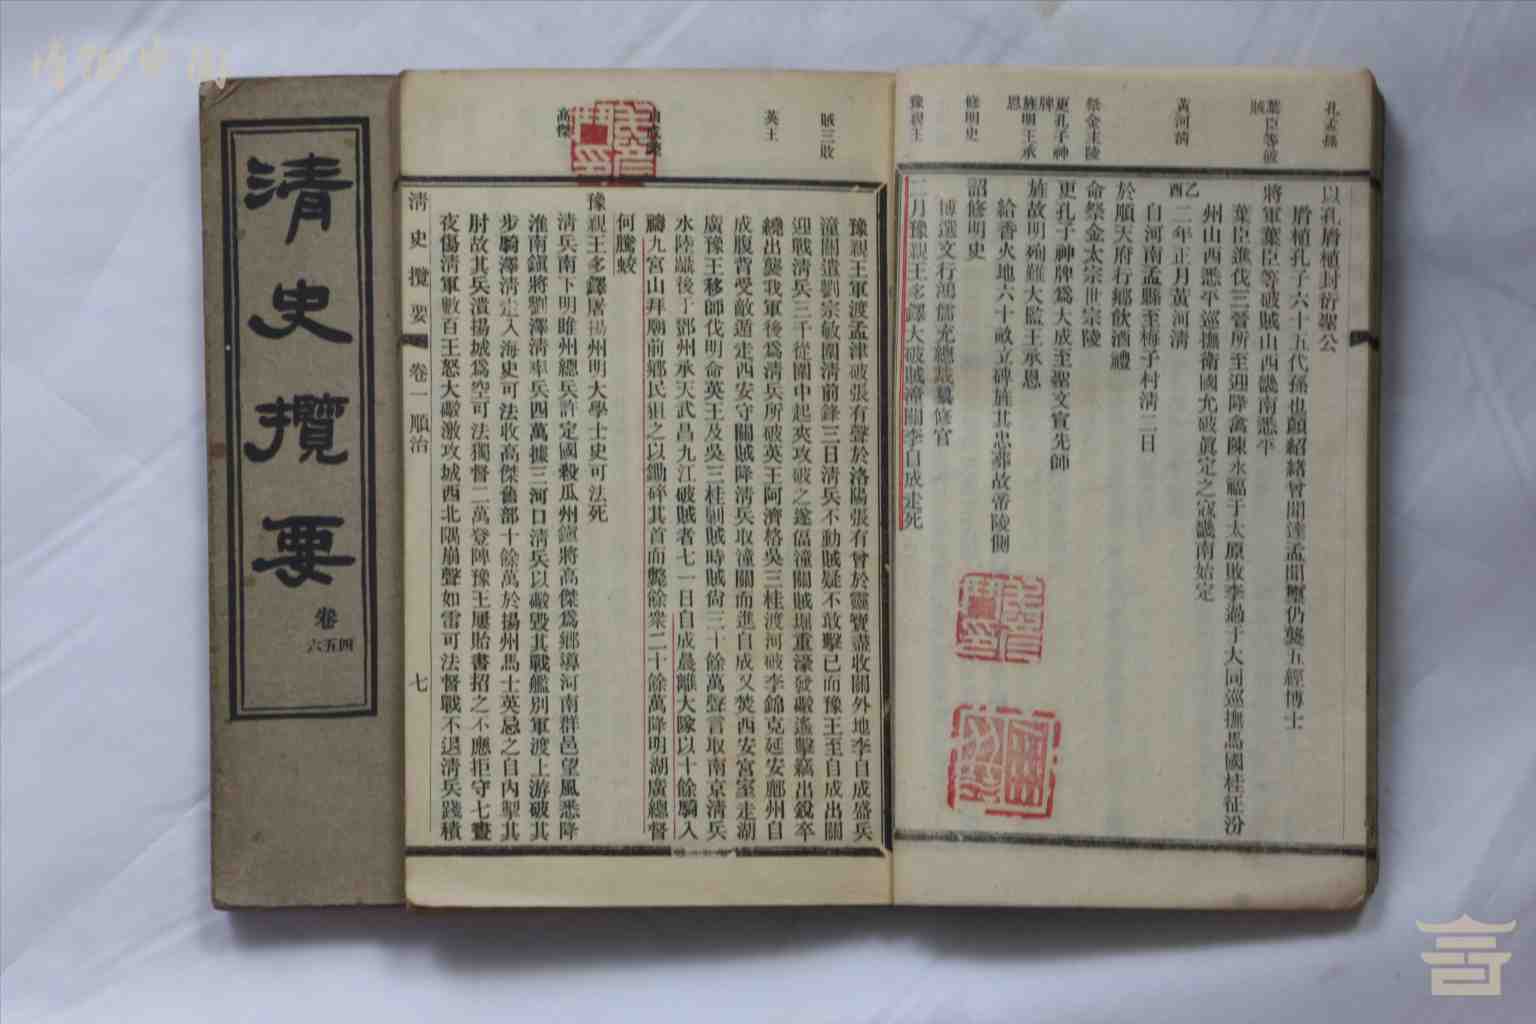 清史攬要
卷
四五六
孔孟孫
葉臣等破
賊
黃河清
祭金主陵
更孔子神
牌
旌明王承
恩
修明史
豫親王
以孔廕植封衍聖公
廕植孔子六十五代孫也顏紹緒曾聞達孟聞璽仍襲五經博士
將軍葉臣等破賊山西畿南悉平
葉臣進伐三晉所至迎降禽陳永福于太原敗李過于大同巡撫馬國桂征汾
州山西悉平巡撫衛國允破眞定之寇畿南始定
乙酉二年正月黃河淸
自河南孟縣至梅子村淸二日
於順天府行鄉飲酒禮
命祭金太宗世宗陵
更孔子神牌爲大成至聖文宣先師
旌故明殉難大監王承恩
給香火地六十畝立碑旌其忠葬故帝陵側
詔修明史
博選文行鴻儒充總裁纂修官
二月豫親王多鐸大破賊潼關李自成走死
賊三敗
英王
高傑
豫親王軍渡孟津破張有聲於洛陽張有曾於靈寶盡收關外地李自成盛兵
潼關遣劉宗敏圍淸前鋒三日淸兵不動賊疑不敢擊已而豫王至自成出關
迎戰淸兵三千從圍中起夾攻破之遂偪潼關賊堀重濠發礮遙擊竊出銳卒
繞出襲我軍後爲淸兵所破英王阿濟格吳三桂渡河破李錦克延安鄜州自
成腹背受敵遁走西安守關賊降淸兵取潼關而進自成又焚西安宮室走湖
廣豫王移師伐明命英王及吳三桂剿賊時賊尙三十餘萬聲言取南京淸兵
水陸躡後于鄧州承天武昌九江破賊者七一日自成晨離大隊以十餘騎入
禱九宮山拜廟前鄉民狙之以鋤碎其首而斃餘衆二十餘萬降明湖廣總督
何騰蛟
豫親王多鐸屠揚州明大學士史可法死
淸兵南下明睢州總兵許定國殺瓜州鎭將高傑爲鄉導河南群邑望風悉降
淮南鎭將劉澤淸率兵四萬據三河口淸兵以礮毀其戰艦別軍渡上游破其
步騎澤淸走入海史可法收高傑舊部十餘萬於揚州馬士英忌之自內掣其
肘故其兵潰揚城爲空可法獨督二萬登陴豫王屢貽書招之不應拒守七晝
夜傷淸軍數百王怒大礮激攻城西北隅崩聲如雷可法督戰不退淸兵踐積
淸史攬要
卷一順治
七